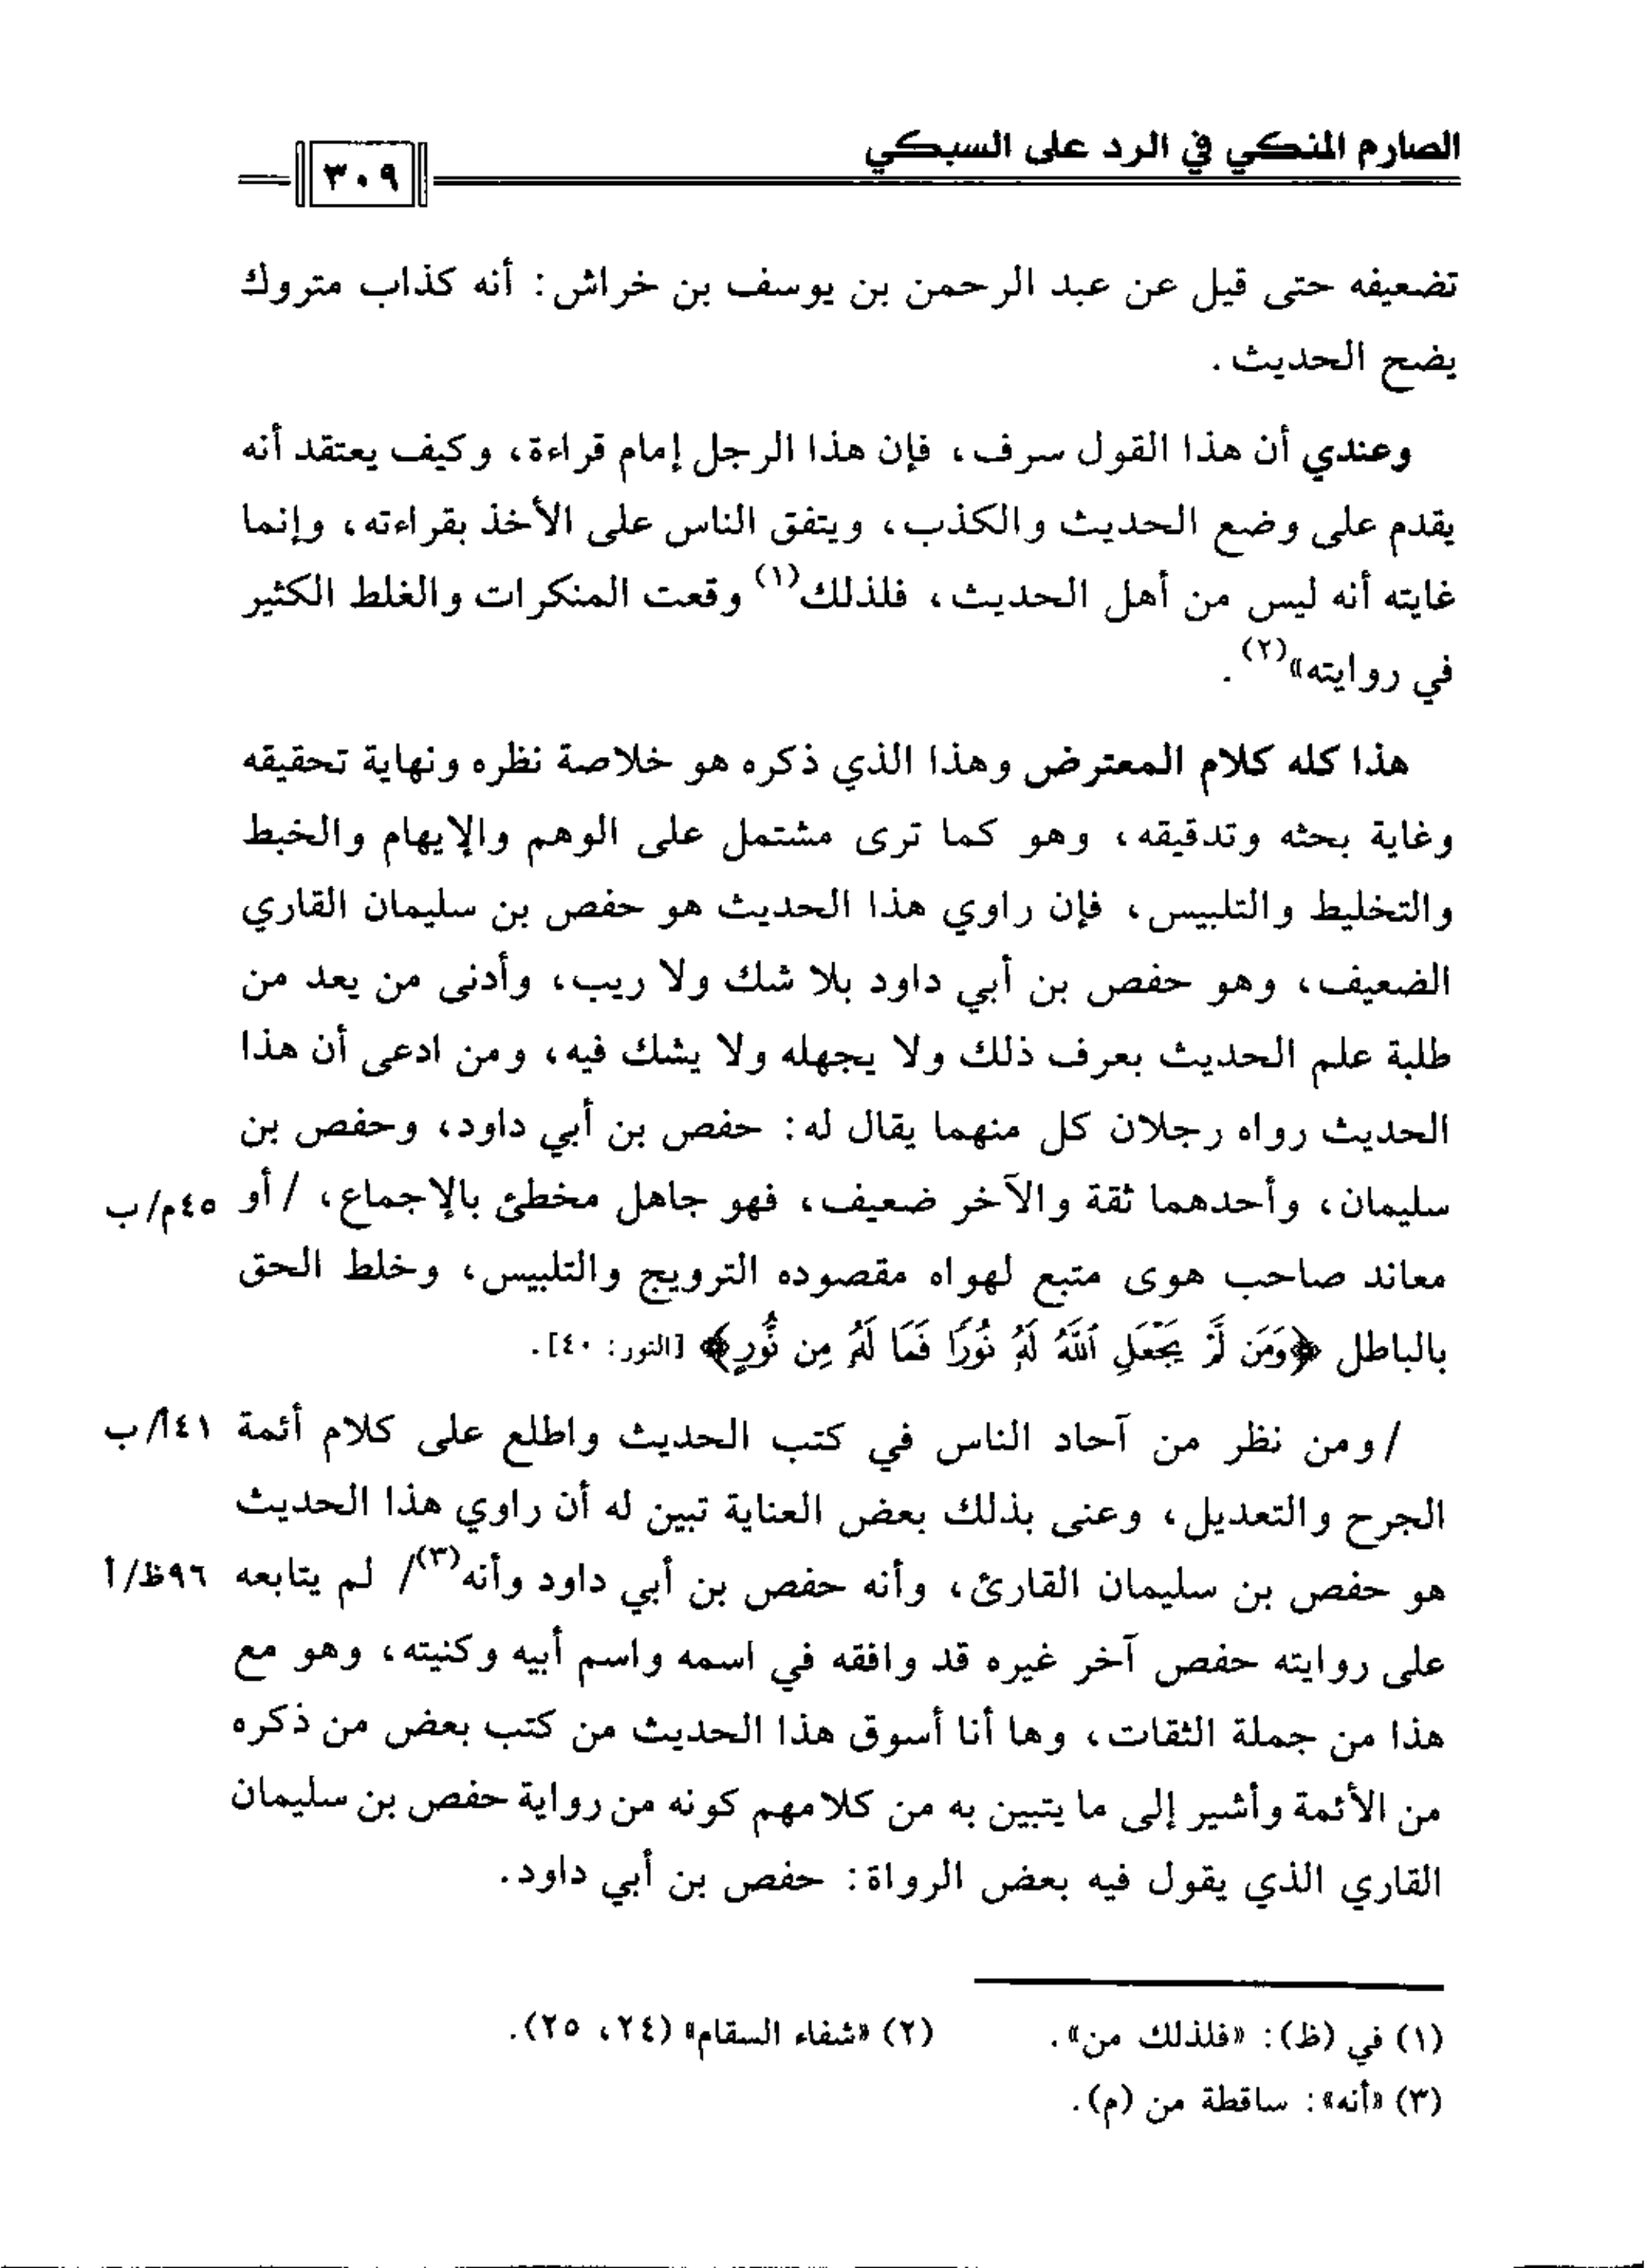 الصارم المنكي في الرد على السبكي
٣٠٩
تضعيفه حتى قيل عن عبد الرحمن بن يوسف بن خراش: أنه كذاب متروك
يضح الحديث.
وعندي أن هذا القول سرف، فإن هذا الرجل إمام قراءة، وكيف يعتقد أنه
يقدم على وضع الحديث والكذب، ويتفق الناس على الأخذ بقراءته، وإنما
غايته أنه ليس من أهل الحديث، فلذلك(١) وقعت المنكرات والغلط الكثير
في روايته»(٢).
هذا كله كلام المعترض وهذا الذي ذكره هو خلاصة نظره ونهاية تحقيقه
وغاية بحثه وتدقيقه، وهو كما ترى مشتمل على الوهم والإيهام والخبط
والتخليط والتلبيس، فإن راوي هذا الحديث هو حفص بن سليمان القاري
الضعيف، وهو حفص بن أبي داود بلا شك ولا ريب، وأدنى من يعد من
طلبة علم الحديث بعرف ذلك ولا يجهله ولا يشك فيه، ومن ادعى أن هذا
الحديث رواه رجلان كل منهما يقال له: حفص بن أبي داود، وحفص بن
سليمان، وأحدهما ثقة والآخر ضعيف، فهو جاهل مخطئ بالإجماع، / أو ٤٥م/ب
معاند صاحب هوى متبع لهواه مقصوده الترويج والتلبيس، وخلط الحق
بالباطل ﴿وَمَن لَّمْ يَجْعَلِ ٱللَّهُ لَهُۥ نُورًا فَمَا لَهُۥ مِن نُّورٍ﴾ [النور: ٤٠].
/ومن نظر من آحاد الناس في كتب الحديث واطلع على كلام أئمة ١٤١أ/ب
الجرح والتعديل، وعنى بذلك بعض العناية تبين له أن راوي هذا الحديث
هو حفص بن سليمان القارئ، وأنه حفص بن أبي داود وأنه(٣)/ لم يتابعه ٩٦ظ/أ
على روايته حفص آخر غيره قد وافقه في اسمه واسم أبيه وكنيته، وهو مع
هذا من جملة الثقات، وها أنا أسوق هذا الحديث من كتب بعض من ذكره
من الأئمة وأشير إلى ما يتبين به من كلامهم كونه من رواية حفص بن سليمان
القاري الذي يقول فيه بعض الرواة: حفص بن أبي داود.
(١) في (ظ): «فلذلك من». (٢) «شفاء السقام» (٢٤، ٢٥).
(٣) «أنه»: ساقطة من (م).